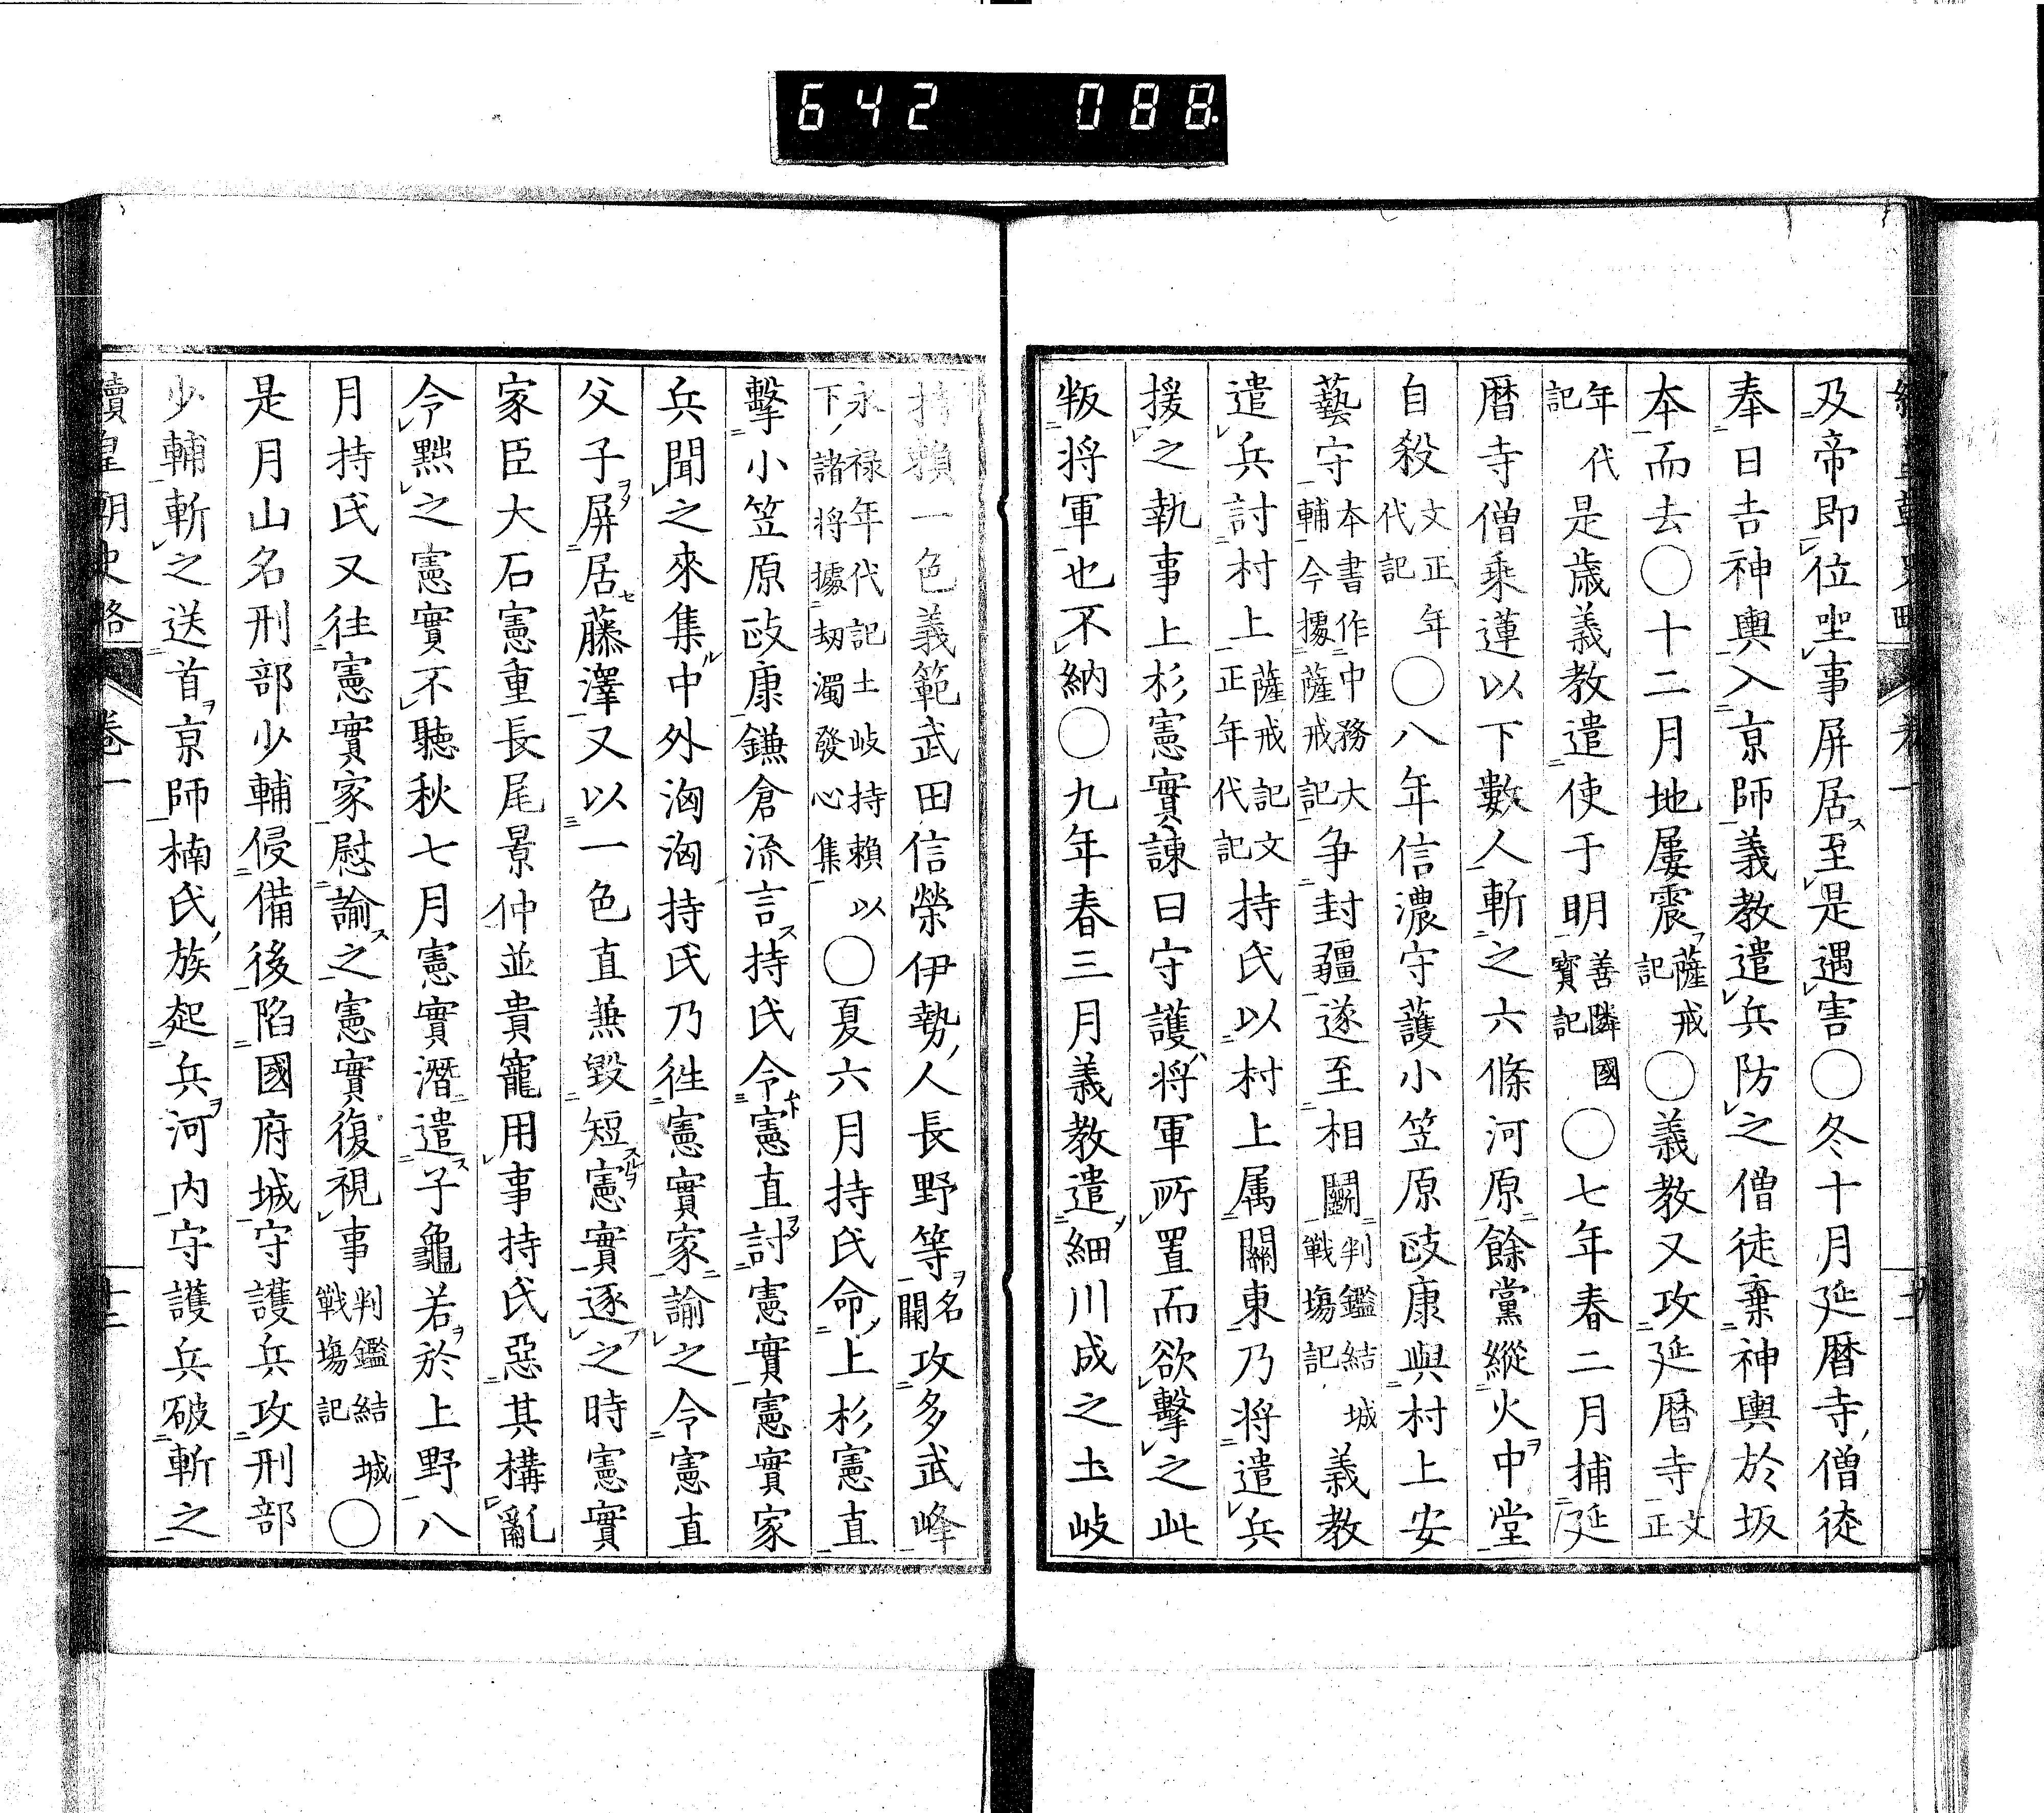 642 088.
及帝即位坐事屏居至是遇害〇冬十月延暦寺僧徒
奉日吉神輿入京師義教遣兵防之僧徒棄神輿於坂
本而去〇十二月地屢震薩戒記〇義教又攻延暦寺文正
年代記是歳義教遣使于明善隣國寳記〇七年春二月捕延
暦寺僧乘蓮以下數人斬之六條河原餘黨縱火中堂
自殺文正年代記〇八年信濃守護小笠原政康與村上安
藝守本書作中務大輔今據薩戒記争封疆遂至相鬭判鑑結城戰場記義教
遣兵討村上薩戒記文正年代記持氏以村上属關東乃將遣兵
援之執事上杉憲實諫曰守護將軍所置而欲擊之此
叛將軍也不納〇九年春三月義教遣細川成之土岐
持頼一色義範武田信榮伊勢人長野等名闕攻多武峰
永禄年代記土岐持頼以下諸将據刼濁發心集〇夏六月持氏命上杉憲直
擊小笠原政康鎌倉流言持氏令憲直討憲實憲實家
兵聞之來集中外洶洶持氏乃徃憲實家諭之令憲直
父子屏居藤澤又以一色直兼毀短憲實逐之時憲實
家臣大石憲重長尾景仲並貴寵用事持氏惡其構亂
令黜之憲實不聽秋七月憲實潛遣子龜若於上野八
月持氏又徃憲實家慰諭之憲實復視事判鑑結城戰場記〇
是月山名刑部少輔侵備後陷國府城守護兵攻刑部
少輔斬之送首京師楠氏族起兵河内守護兵破斬之
續皇朝史略 卷一 十二